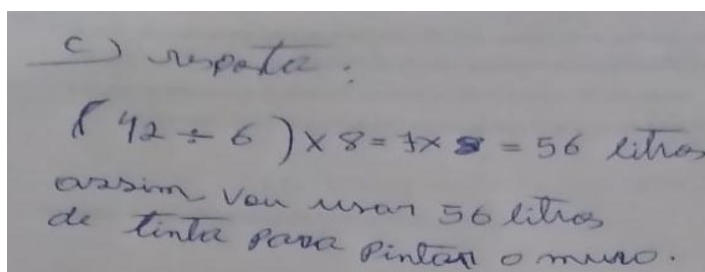 c) resposta:
( 42 ÷ 6 ) x 8 = 7 x 8 = 56 litros
assim vou usar 56 litros
de tinta para pintar o muro.